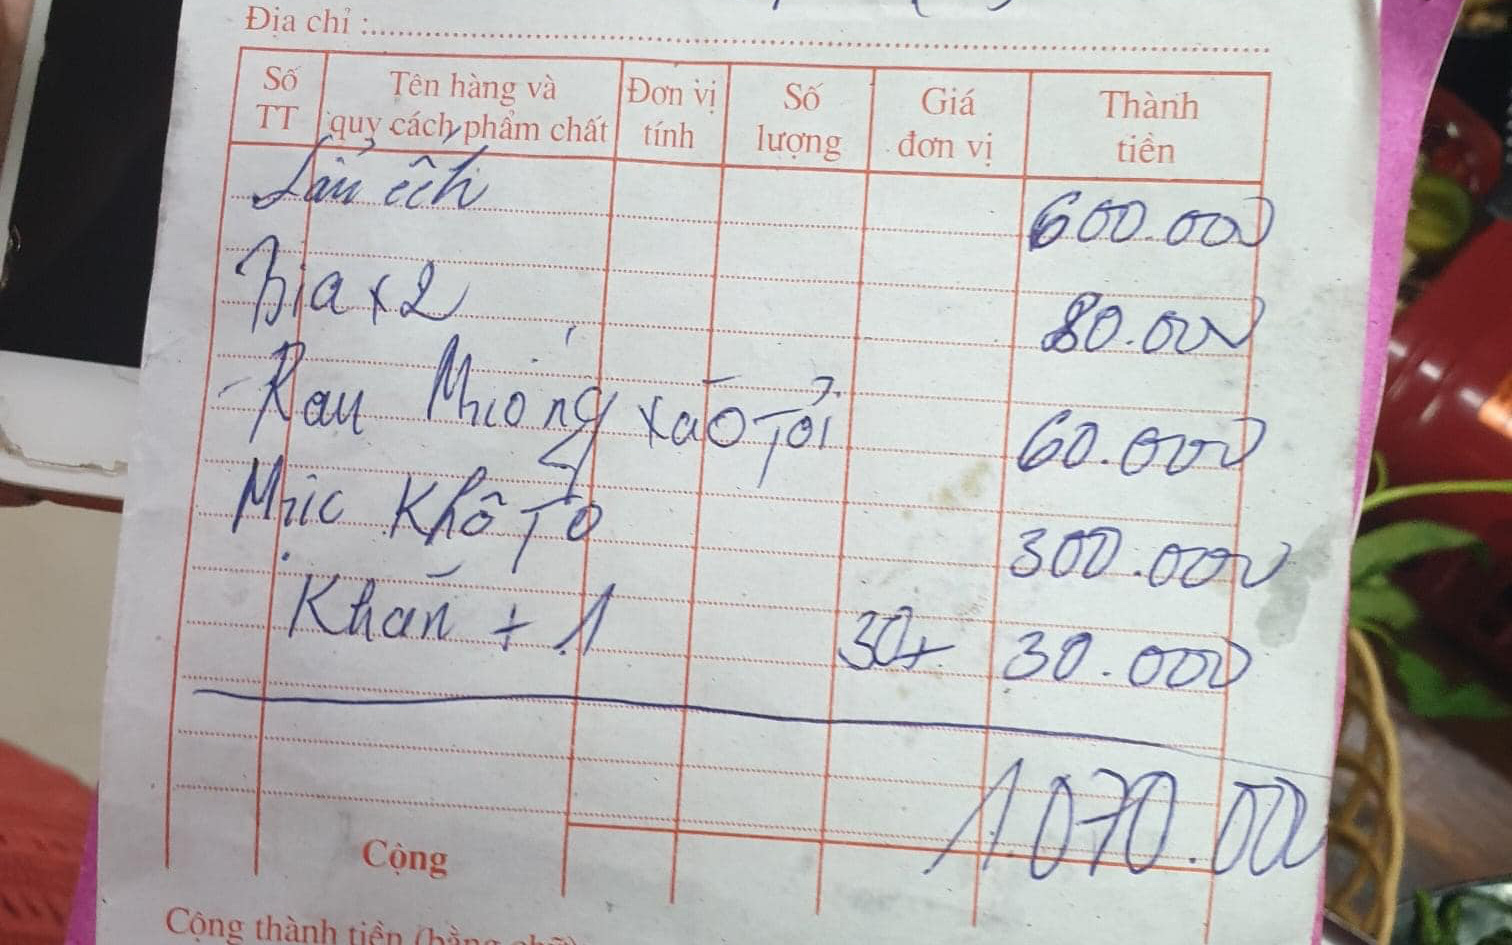 Địa chỉ :
Số TT Tên hàng và quy cách, phẩm chất Đơn vị tính Số lượng Giá đơn vị Thành tiền
Lẩu ếch 600.000
Bia x 2 80.000
Rau Muống xào Tỏi 60.000
Mực Khô To 300.000
Khăn + 1 30+ 30.000
1.070.000
Cộng
Cộng thành tiền (bằng chữ)